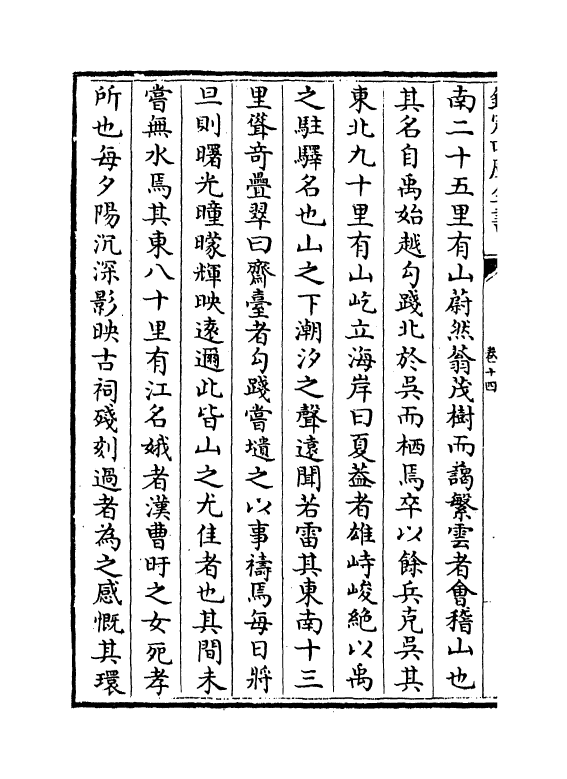 欽定四庫全書
卷十四
南二十五里有山蔚然蓊茂樹而藹繁雲者會稽山也
其名自禹始越勾踐北於吳而栖焉卒以餘兵克吳其
東北九十里有山屹立海岸曰夏葢者雄峙峻絶以禹
之駐驛名也山之下潮汐之聲遠聞若雷其東南十三
里聳奇疊翠曰齋臺者勾踐嘗壝之以事禱焉每日將
旦則曙光曈曚輝映遠邇此皆山之尤佳者也其間未
嘗無水焉其東八十里有江名娥者漢曹旴之女死孝
所也每夕陽沉深影映古祠殘刻過者為之感慨其環